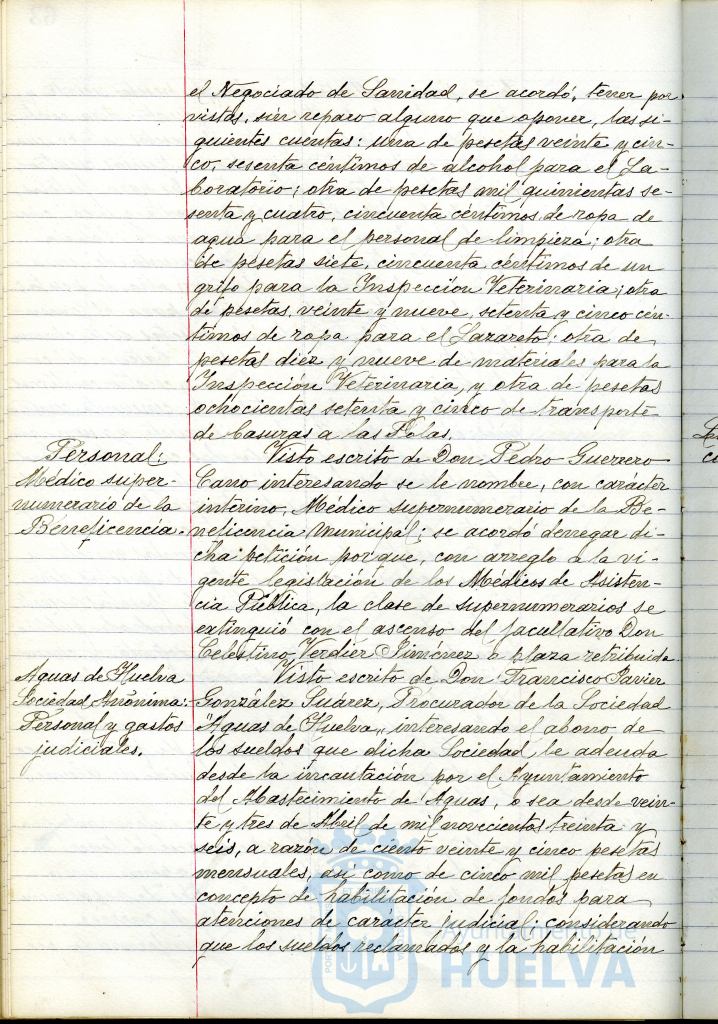 el Negociado de Sanidad, se acordó, tener por
vistas, sin reparo alguno que oponer, las si-
guientes cuentas: una de pesetas veinte y cin-
co, sesenta céntimos de alcohol para el La-
boratorio; otra de pesetas mil quinientas se-
senta y cuatro, cincuenta céntimos de ropa de
agua para el personal de limpieza; otra
de pesetas siete, cincuenta céntimos de un
grifo para la Inspección Veterinaria; otra
de pesetas, veinte y nueve, setenta y cinco cén-
timos de ropa para el Lazareto; otra de
pesetas diez y nueve de materiales para la
Inspección Veterinaria, y otra de pesetas
ochocientas setenta y cinco de transporte
de basuras a las Polas.
Personal:
Médico super-
numerario de la
Beneficencia.
Visto escrito de Don Pedro Guerrero
Cano interesando se le nombre, con carácter
interino, Médico supernumerario de la Be-
neficencia Municipal; se acordó denegar di-
cha petición porque, con arreglo a la vi-
gente legislación de los Médicos de Asisten-
cia Pública, la clase de supernumerarios se
extinguió con el ascenso del facultativo Don
Celestino Verdier Jiménez a plaza retribuida.
Aguas de Huelva
Sociedad Anónima:
Personal y gastos
judiciales.
Visto escrito de Don Francisco Javier
González Suárez, Procurador de la Sociedad
"Aguas de Huelva", interesando el abono de
los sueldos que dicha Sociedad le adeuda
desde la incautación por el Ayuntamiento
del Abastecimiento de Aguas, o sea desde vein-
te y tres de Abril de mil novecientos treinta y
seis, a razón de ciento veinte y cinco pesetas
mensuales, así como de cinco mil pesetas en
concepto de habilitación de fondos para
atenciones de carácter judicial; considerando
que los sueldos reclamados y la habilitación
Ayuntamiento de
HUELVA